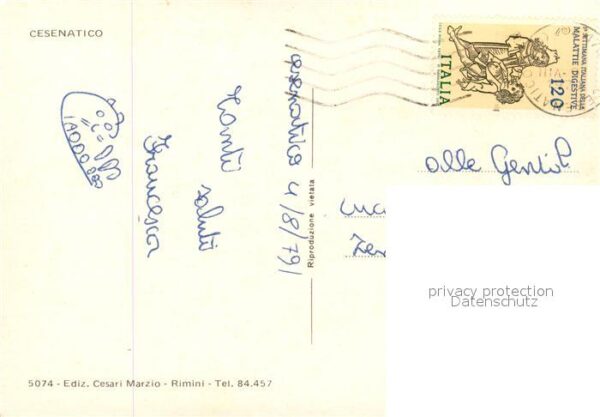 CESENATICO
cesenatico 4/8/79
Tanti
saluti
Francesca
Riproduzione vietata
SETTIMANA ITALIANA DELLE
MALATTIE DIGESTIVE
120
ITALIA
alle Gentil
privacy protection
Datenschutz
5074 - Ediz. Cesari Marzio - Rimini - Tel. 84.457